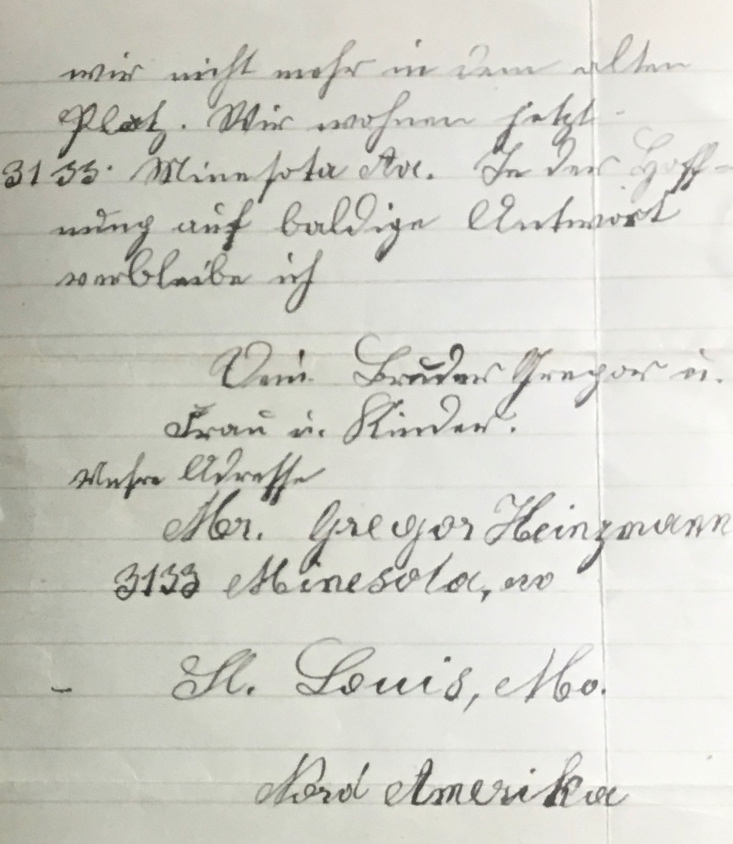 wir nicht mehr in dem alten
Platz. Wir wohnen jetzt
3133. Minesota Av. In der Hoff-
nung auf baldige Antwort
verbleibe ich
Dein Bruder Gregor u.
Frau u. Kinder.
Unsre Adresse
Mr. Gregor Heinzmann
3133 Minesota, av
St. Louis, Mo.
Nord Amerika